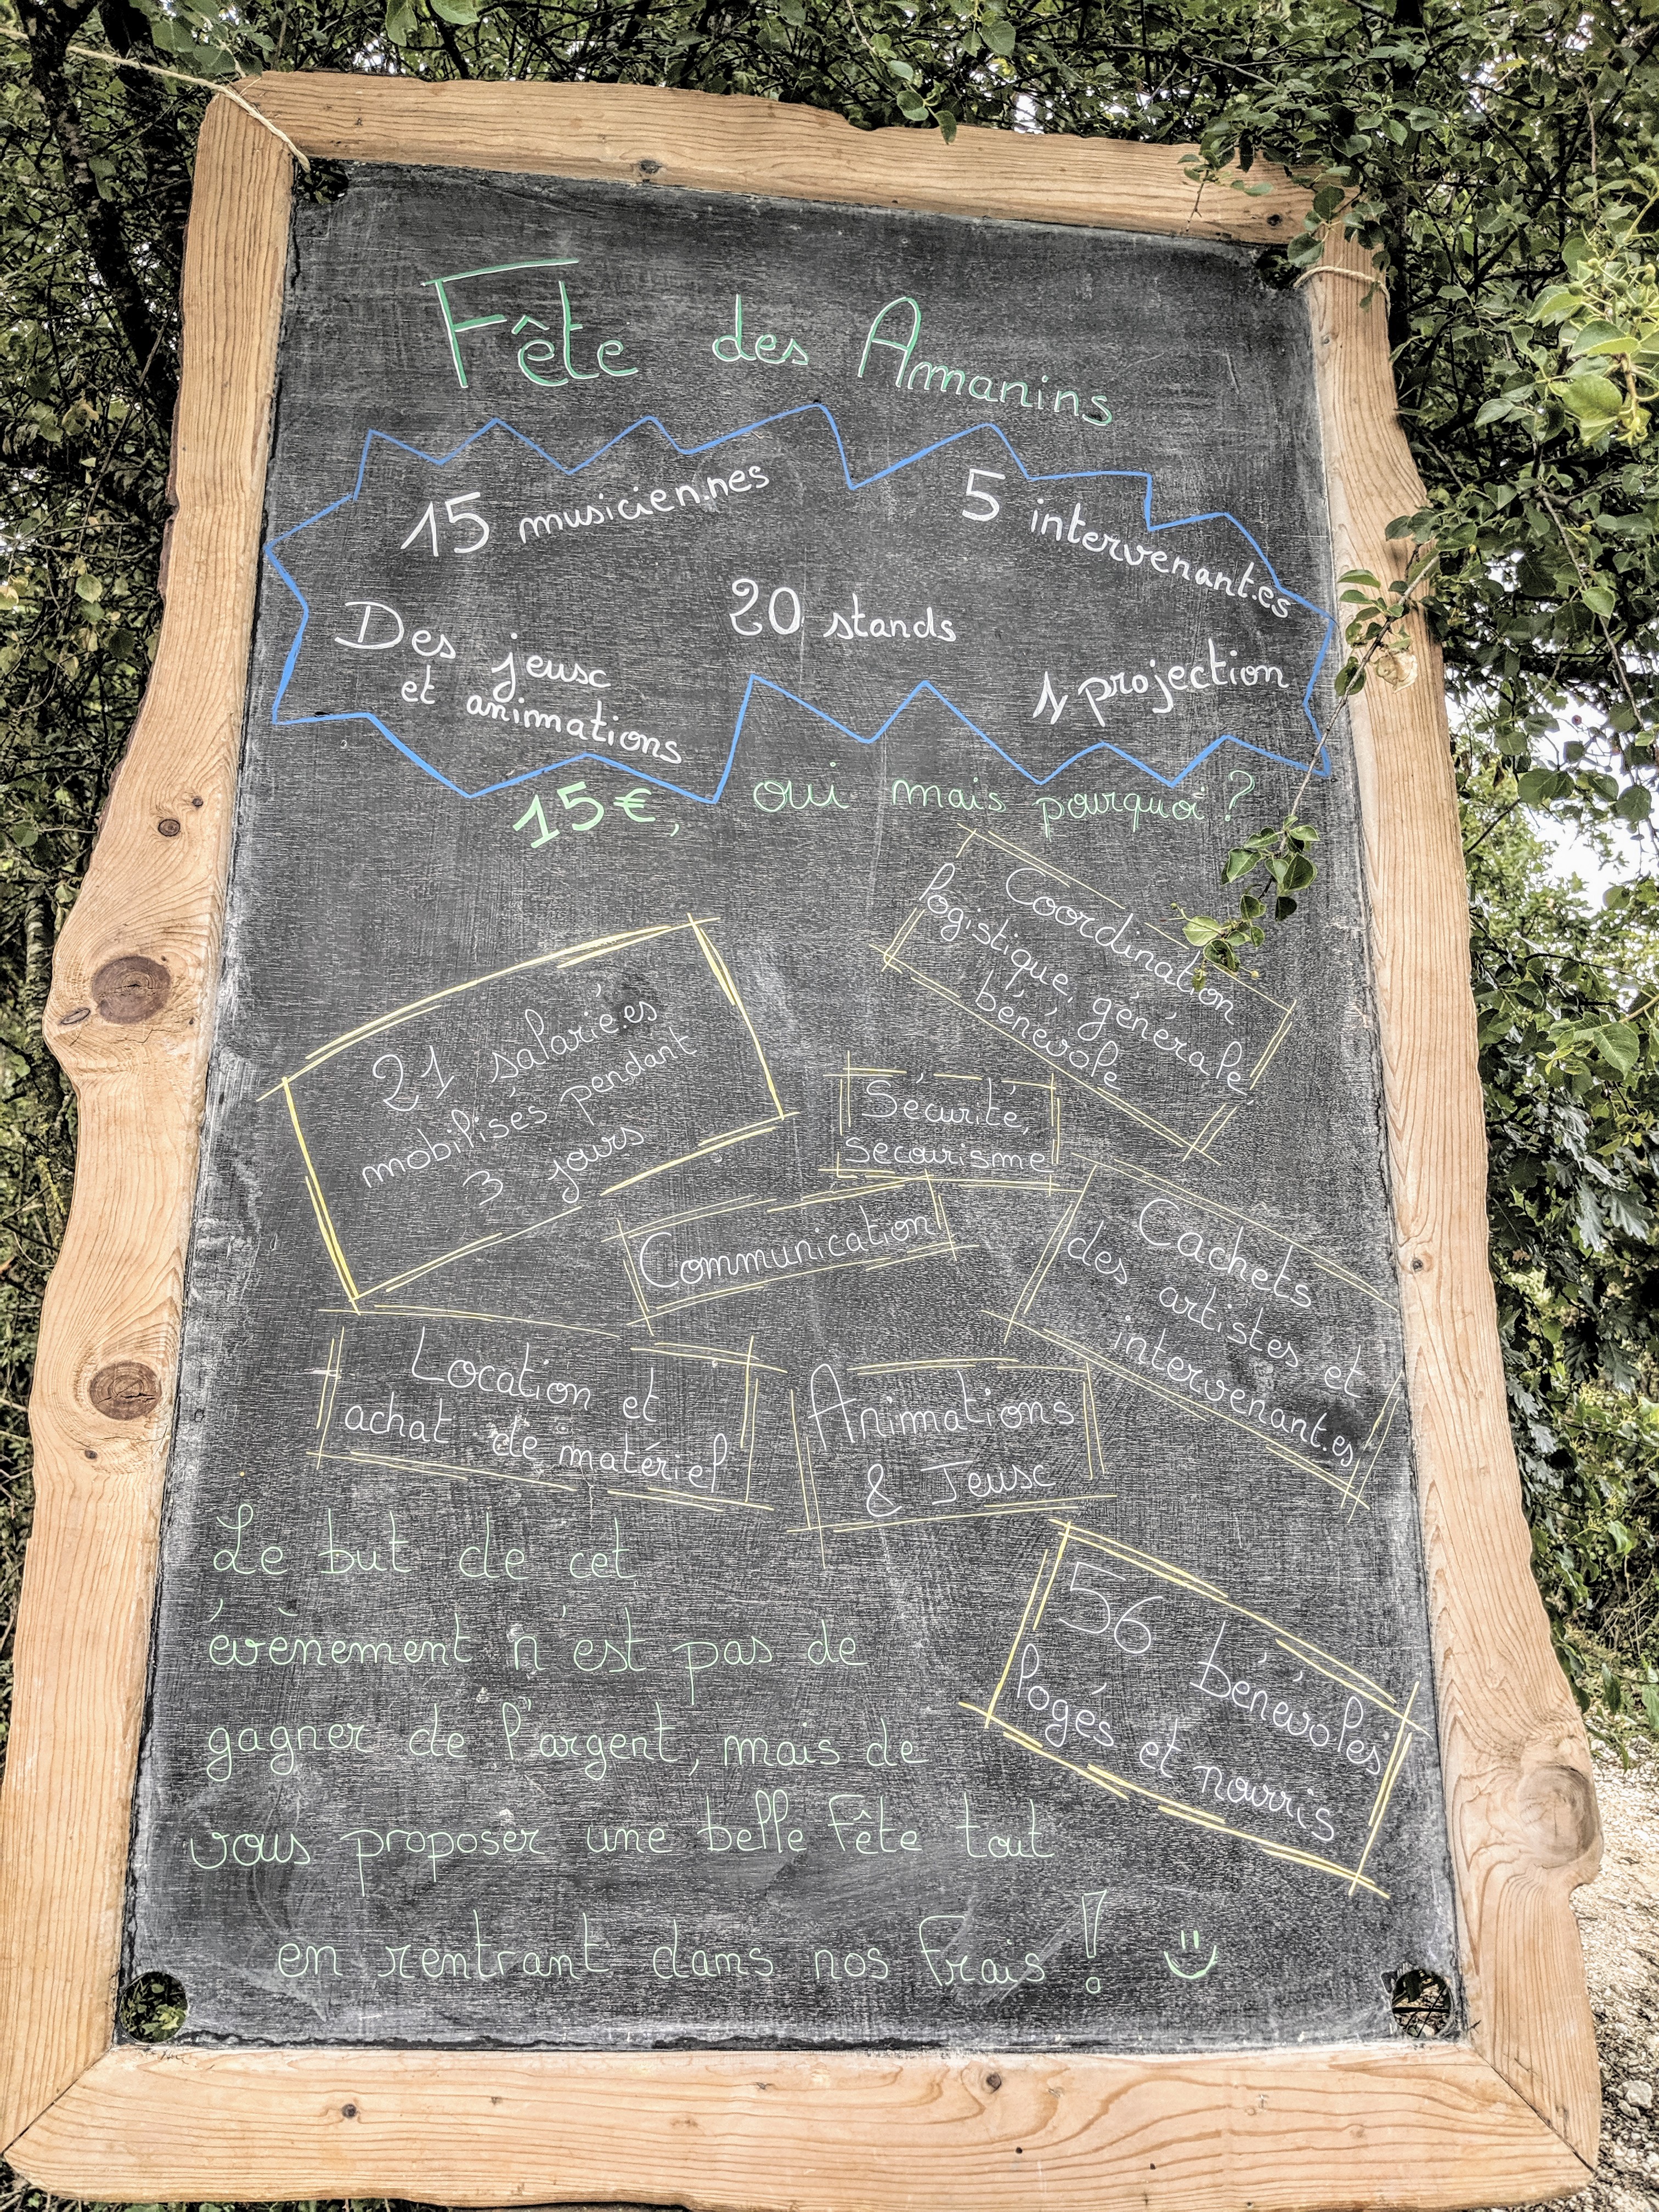 Fête des Amanins
15 musicien.nes
5 intervenant.es
20 stands
Des jeux
et animations
1 projection
15€, oui mais pourquoi ?
Coordination
logistique, générale,
bénévole
21 salarié.es
mobilisés pendant
3 jours
Sécurité,
secourisme
Communication
Cachets
des artistes et
intervenant.es
Location et
achat de matériel
Animations
& Jeux
Le but de cet
évènement n'est pas de
gagner de l'argent, mais de
vous proposer une belle Fête tout
en rentrant dans nos frais !
56 bénévoles
logés et nourris